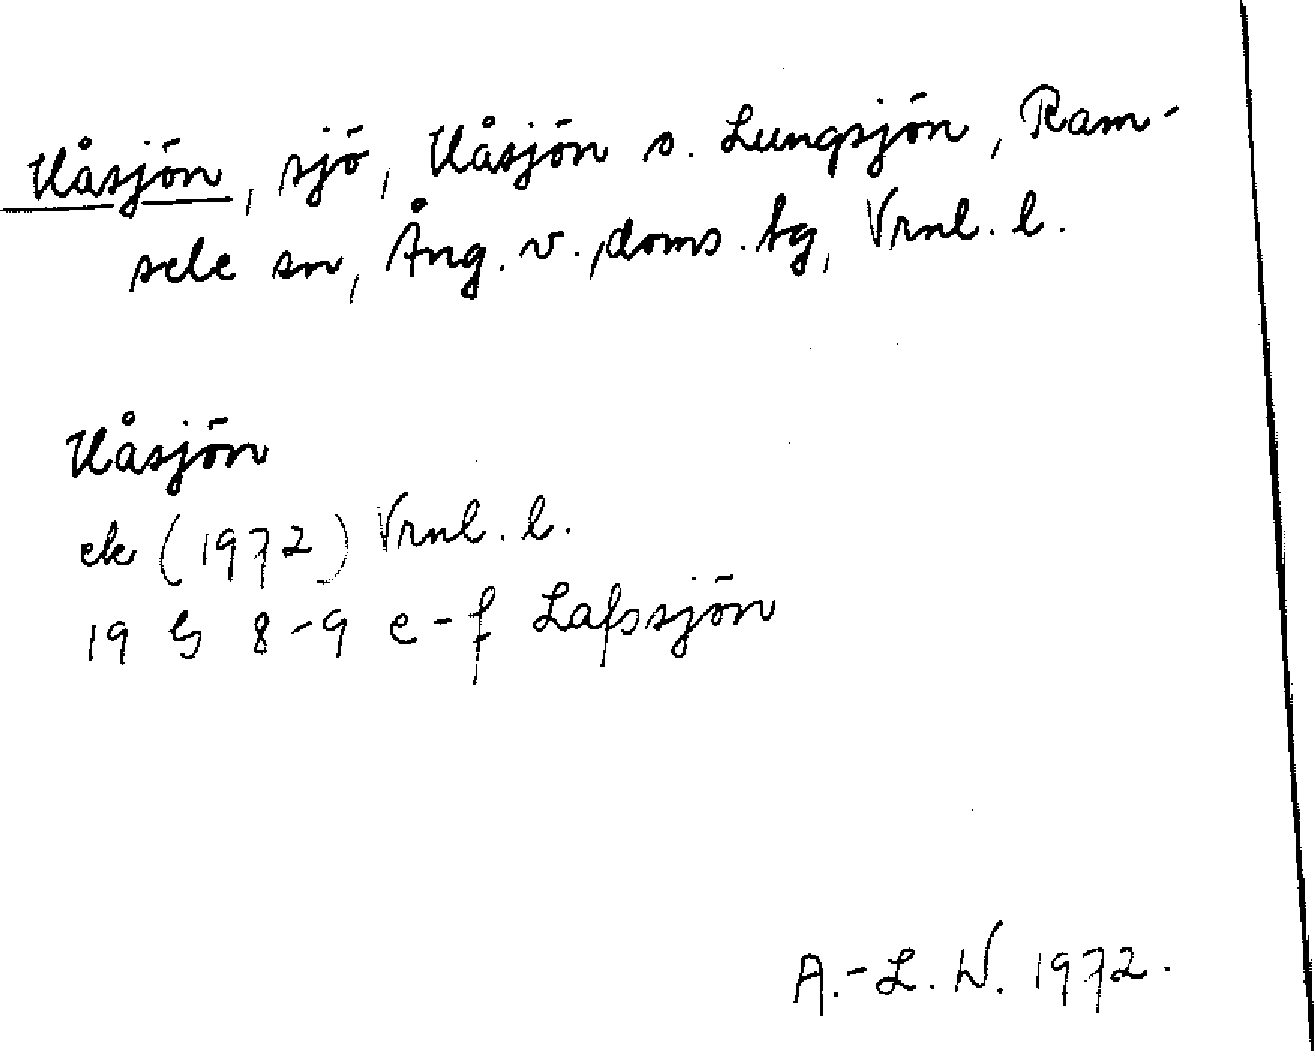 Kåsjön, sjö, Kåsjön o. Lungsjön, Ram-
sele sn, Ång. v., doms. tg, Vrnl. l.
Kåsjön
ek (1972) Vrnl. l.
19 G 8-9 e-f Lafssjön
A.-L. W. 1972.